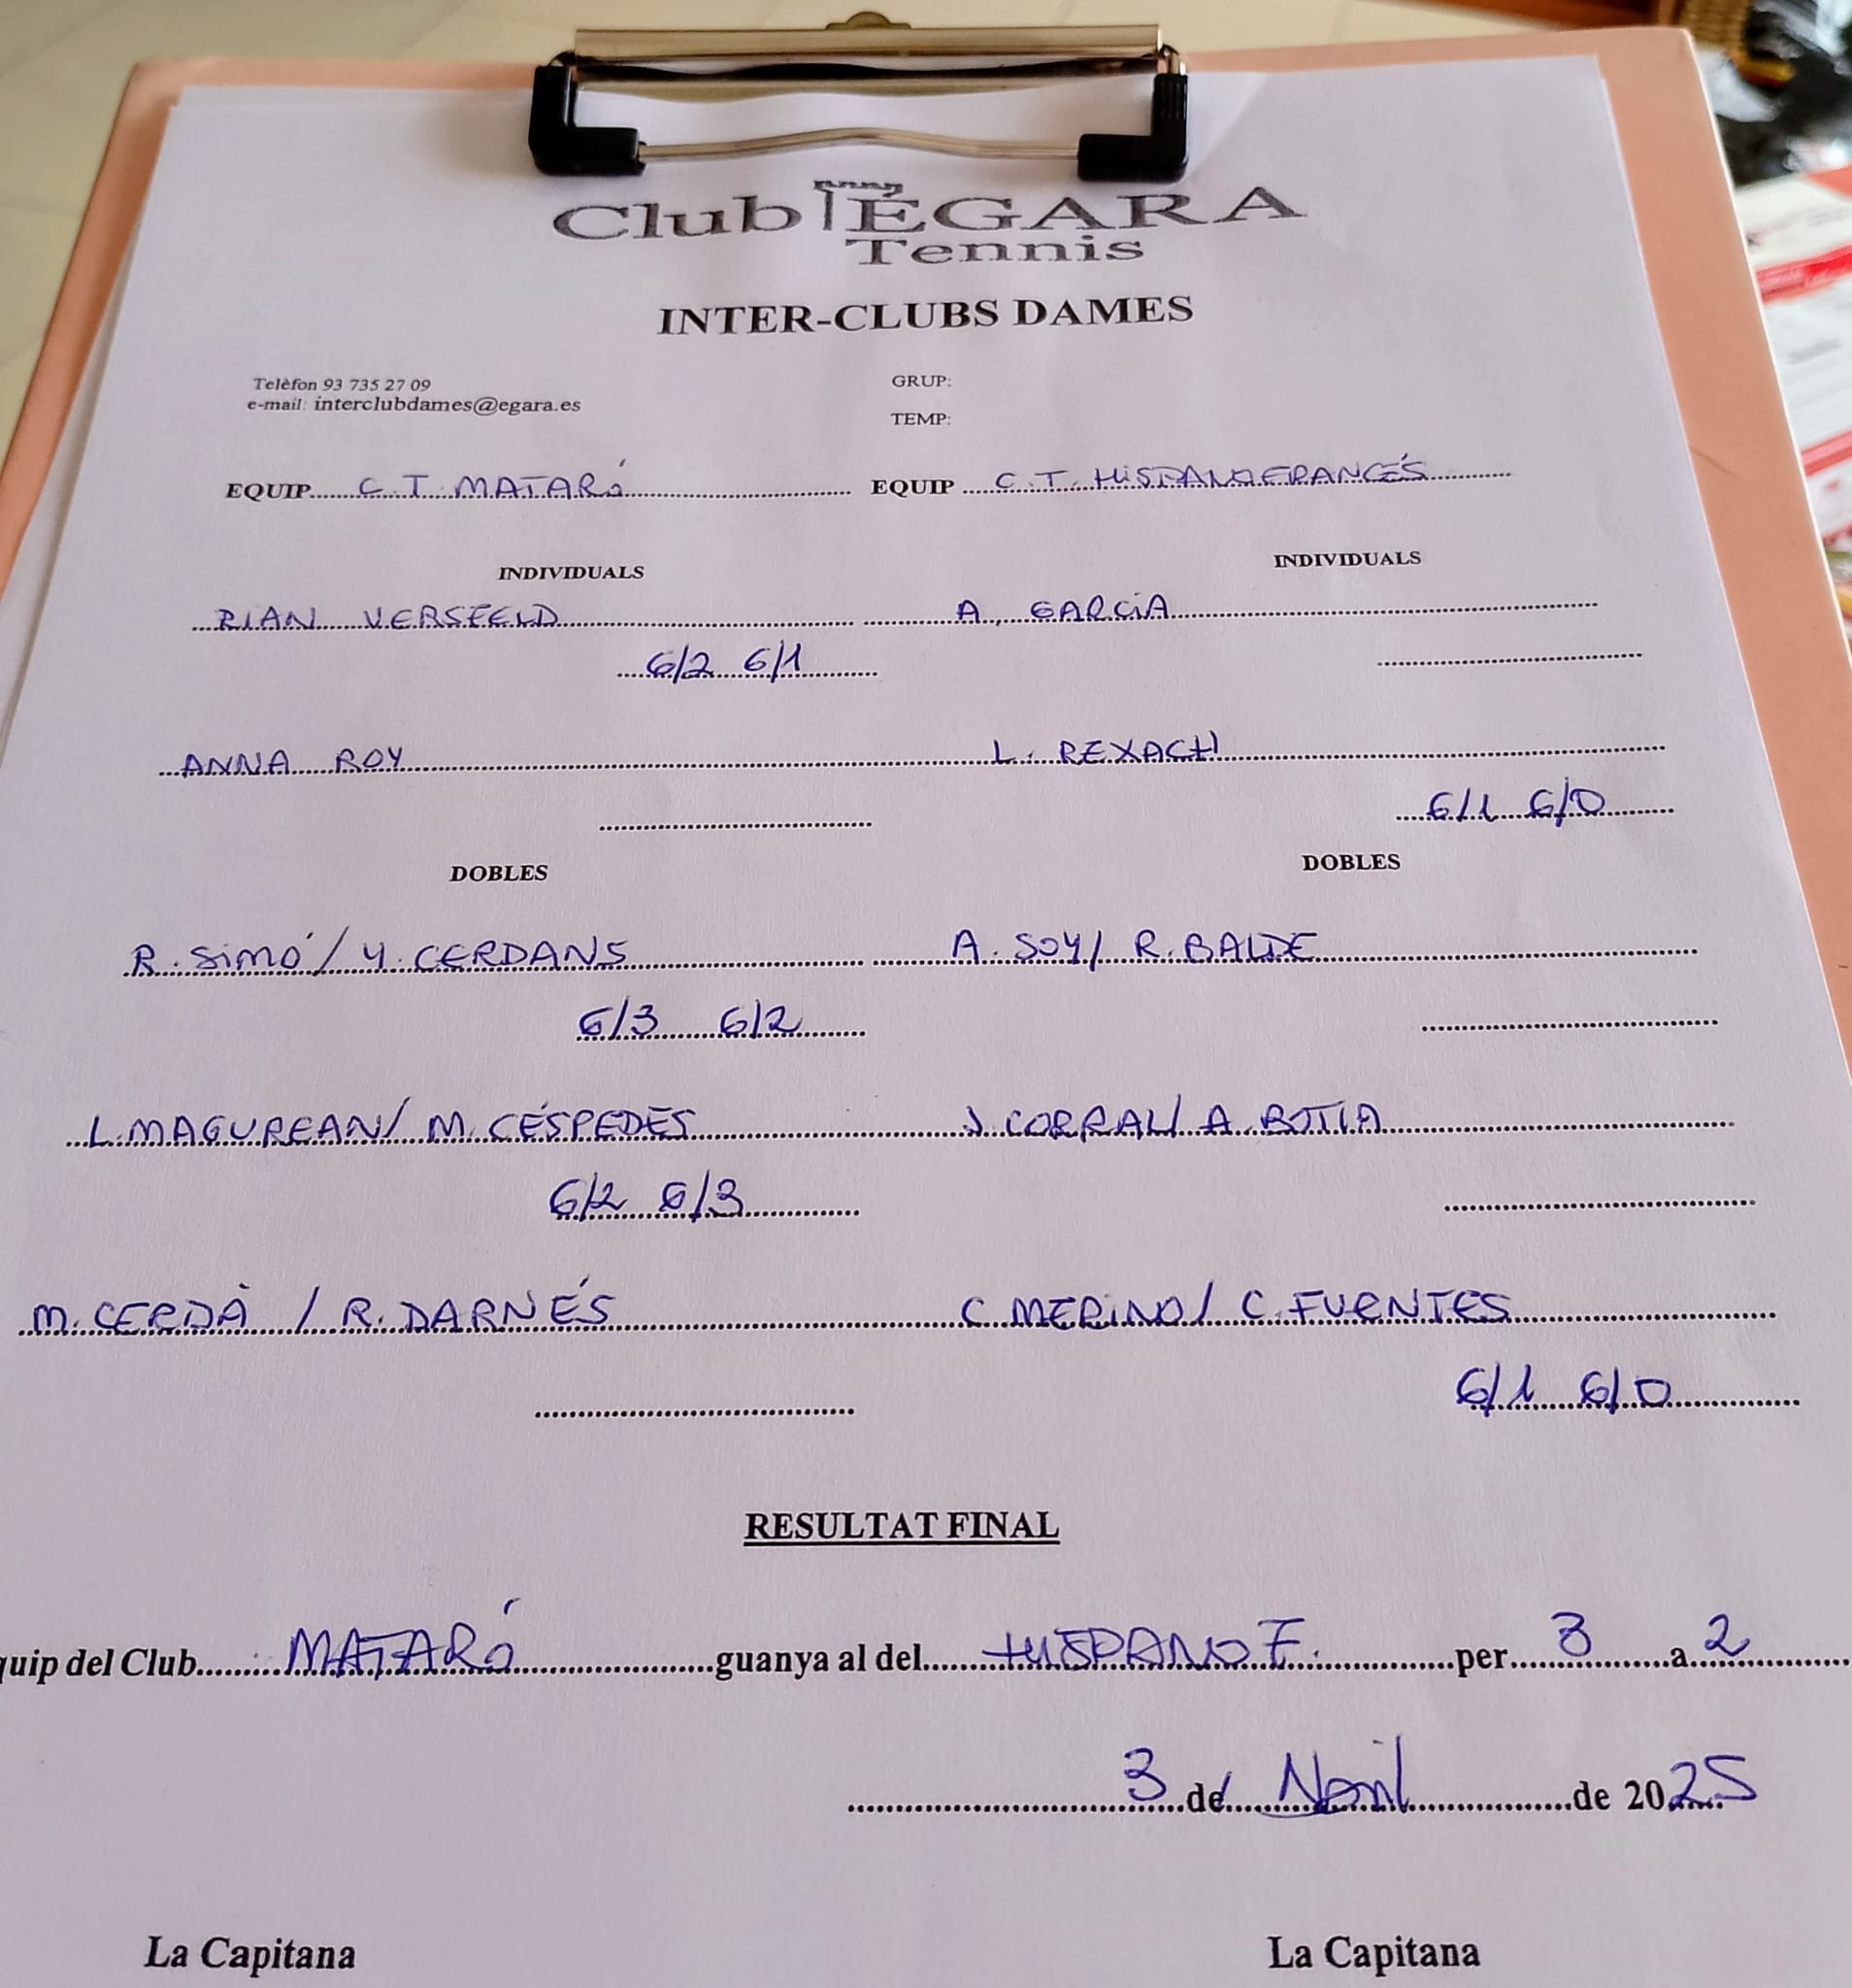 Club EGARA
Tennis
INTER-CLUBS DAMES
Telèfon 93 735 27 09
e-mail: interclubdames@egara.es
GRUP:
TEMP:
EQUIP C.T. MATARÓ EQUIP C.T. HISPANOFRANCÉS
INDIVIDUALS INDIVIDUALS
RIAN VERSFELD A. GARCIA
6/2 6/1
ANNA ROY L. REXACH
6/1 6/0
DOBLES DOBLES
R. SIMÓ / Y. CERDANS A. SOY / R. BALDE
6/3 6/2
L. MAGUREAN / M. CÉSPEDES J. CORRAL / A. BOTIA
6/2 6/3
M. CERDÀ / R. DARNÉS C. MERINO / C. FUENTES
6/1 6/0
RESULTAT FINAL
quip del Club MATARÓ guanya al del HISPANO F. per 3 a 2
3 d' Abril de 2025
La Capitana La Capitana